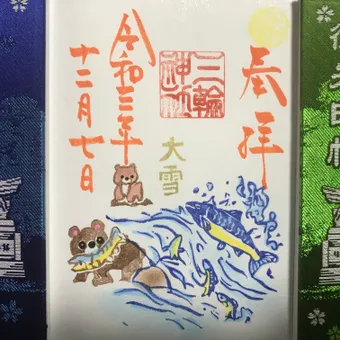 奉拝
三輪神社
大雪
令和三年
十二月七日